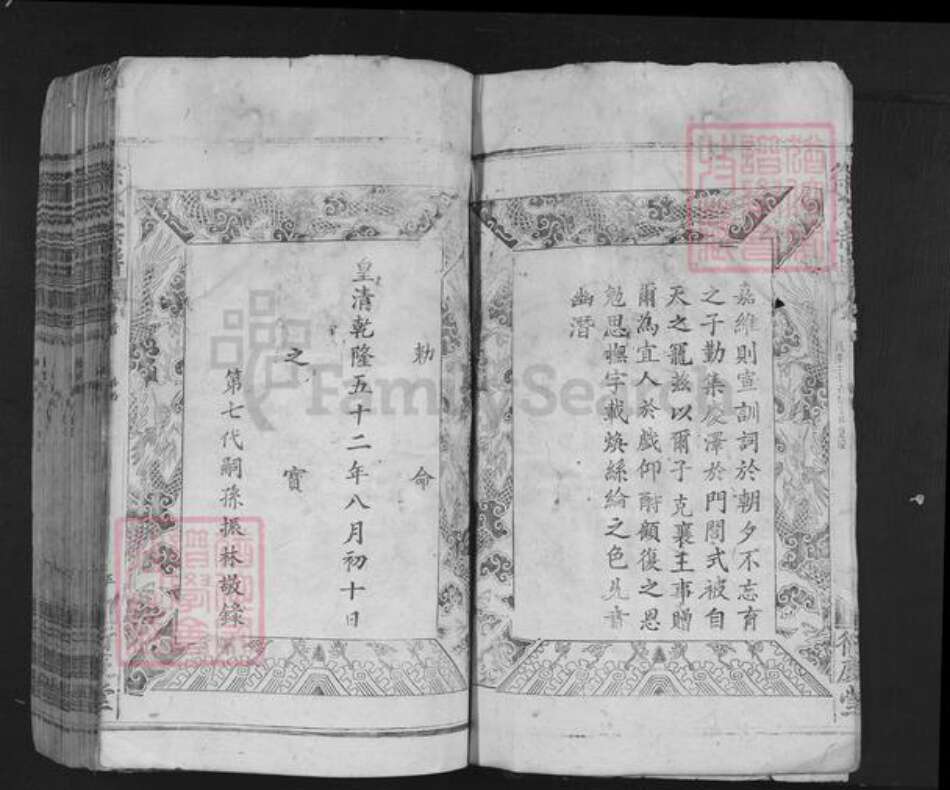 嘉維則宣訓詞於朝夕不忘育
之子勤集慶澤於門閭式被自
天之寵茲以爾子克襄王事贈
爾為宜人於戲仰酧顧復之恩
勉思撫字載煥絲綸之色允賁
幽潛
勅命
皇清乾隆五十二年八月初十日
之寶
第七代嗣孫振林敬錄
FamilySearch